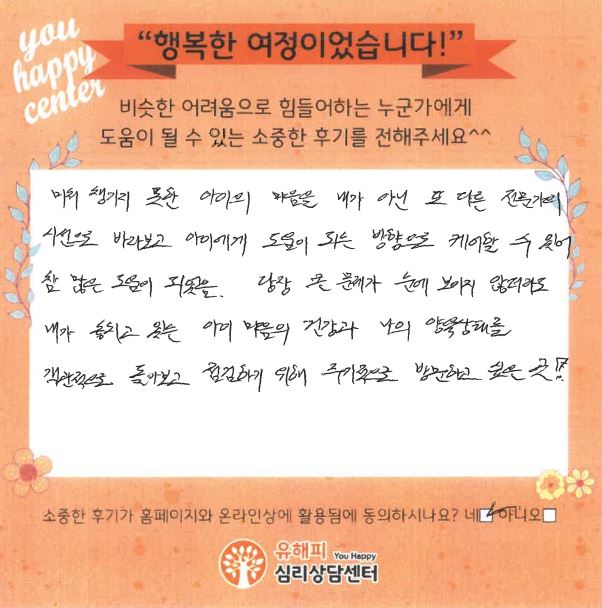 you
happy
center
“행복한 여정이었습니다!”
비슷한 어려움으로 힘들어하는 누군가에게
도움이 될 수 있는 소중한 후기를 전해주세요^^
미처 챙기지 못한 아이의 마음을 내가 아닌 또 다른 전문가의
시선으로 바라보고 아이에게 도움이 되는 방향으로 케어할 수 있어
참 많은 도움이 되었음. 당장 큰 문제가 눈에 보이지 않더라도
내가 놓치고 있는 아이 마음의 건강과 나의 양육상태를
객관적으로 돌아보고 점검하기 위해 주기적으로 방문하고 싶은 곳!!
소중한 후기가 홈페이지와 온라인상에 활용됨에 동의하시나요? 네 아니오
유해피 You Happy
심리상담센터